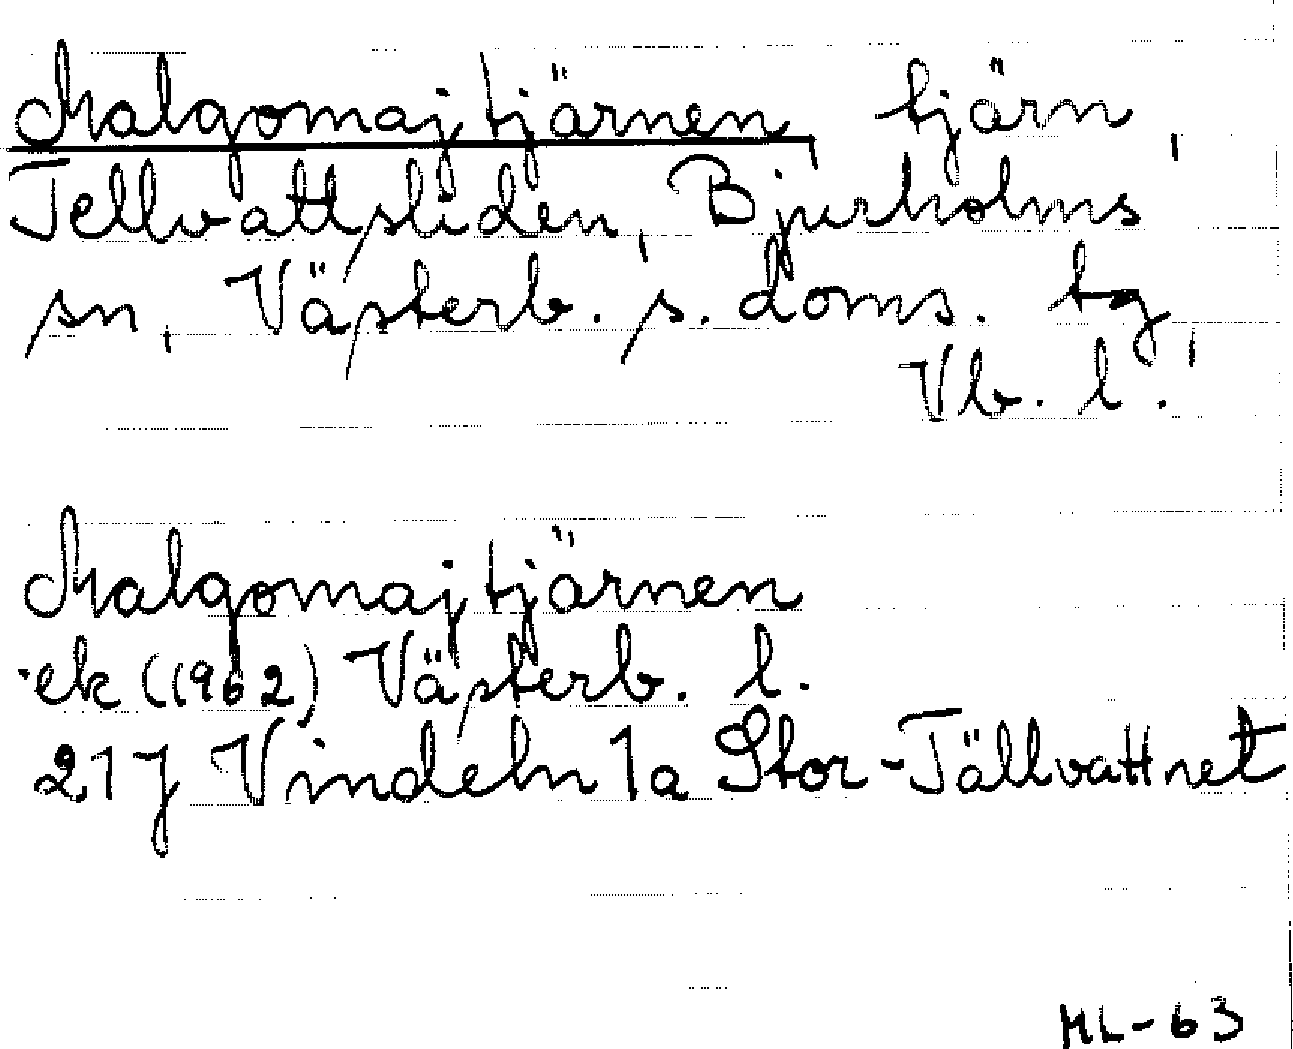 Malgomajtjärnen, tjärn,
Tellvattsliden, Bjurholms
sn, Västerb. s. doms. tg,
Vb. l.
Malgomajtjärnen
ek (1962) Västerb. l.
21J Vindeln 1a Stor-Tällvattnet
ML-63